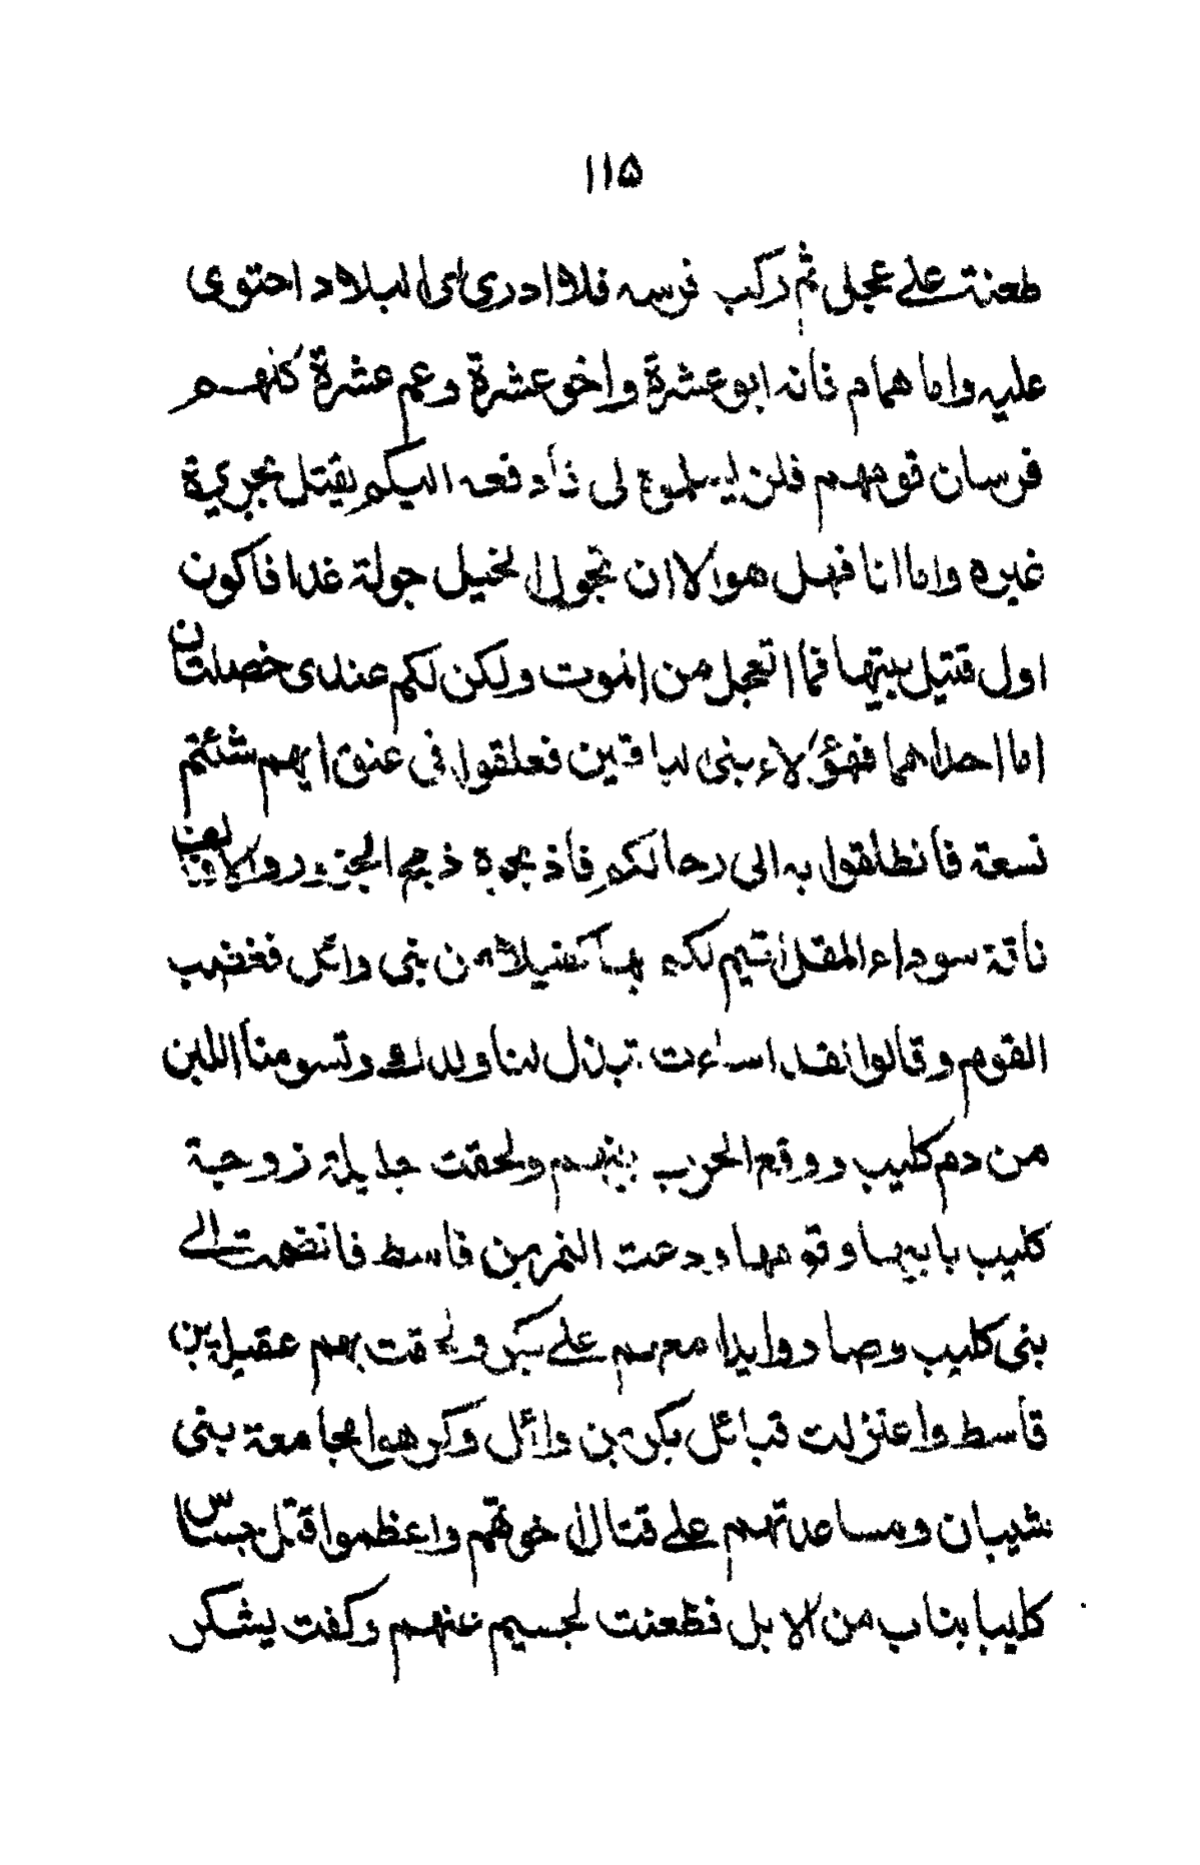 ۱۱۵
طعنة على عجل ثم ركب فرسه فلا ادرى اى البلاد احتوى
عليه واما همام فانه ابو عشرة واخو عشرة وعم عشرة كلهم
فرسان قومهم فلن يسلموه لى فأدفعه اليكم يقتل بجريرة
غيره واما انا فهل هو الا ان تجول الخيل جولة غدا فاكون
اول قتيل بينها فما اتعجل من الموت ولكن لكم عندى خصلتان
اما احداهما فهؤلاء بنى الباقين فعلقوا فى عنق ايهم شئتم
نسعة فانطلقوا به الى رحالكم فأذبحوه ذبح الجزور والا فالف
ناقة سوداء المقل اقيم لكم بها كفيلا من بنى وائل فغضب
القوم وقالوا لقد اساءت تبذل لنا ولدك وتسومنا اللبن
من دم كليب ووقع الحرب بينهم ولحقت جليلة زوجة
كليب بابيها وقومها ودعت النمر بن قاسط فانضمت الى
بنى كليب وصاروا يدا معهم على بكر ولحقت بهم عقيل بن
قاسط واعتزلت قبائل بكر بن وائل وكرهوا مجامعة بنى
شيبان ومساعدتهم على قتال اخوتهم واعظموا قتل جساس
كليبا بناب من الابل فظعنت لجيم عنهم وكفت يشكر